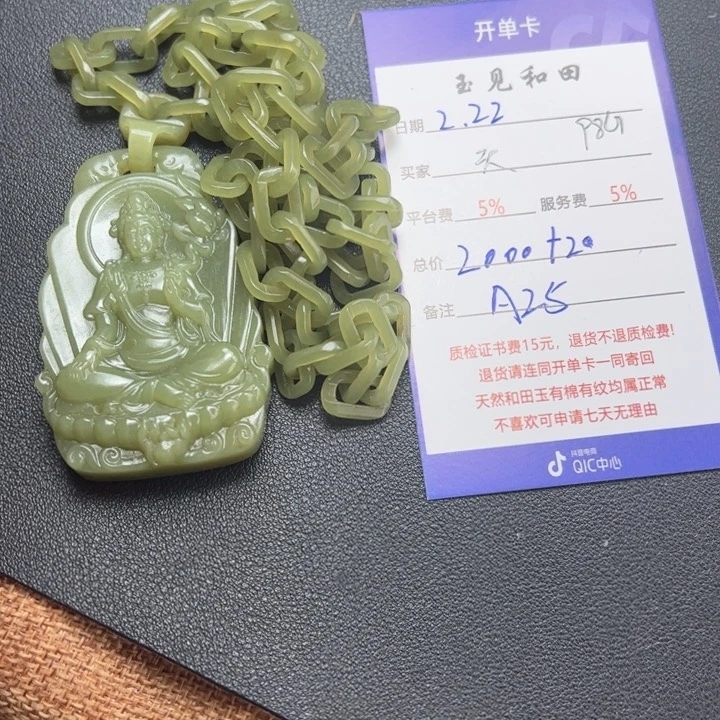 开单卡
玉见和田
日期 2.22 P8G
买家
平台费 5% 服务费 5%
总价 2000+20
备注 A25
质检证书费15元，退货不退质检费!
退货请连同开单卡一同寄回
天然和田玉有棉有纹均属正常
不喜欢可申请七天无理由
抖音电商
QIC中心